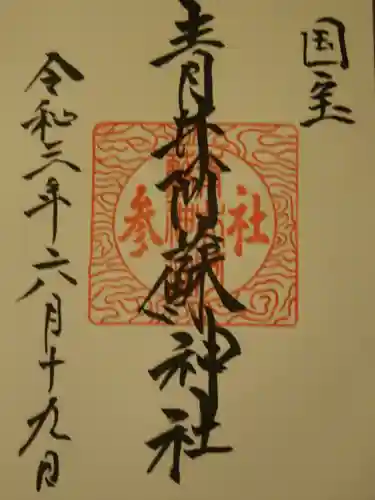 国宝
青井阿蘇神社
参社
令和三年六月十九日